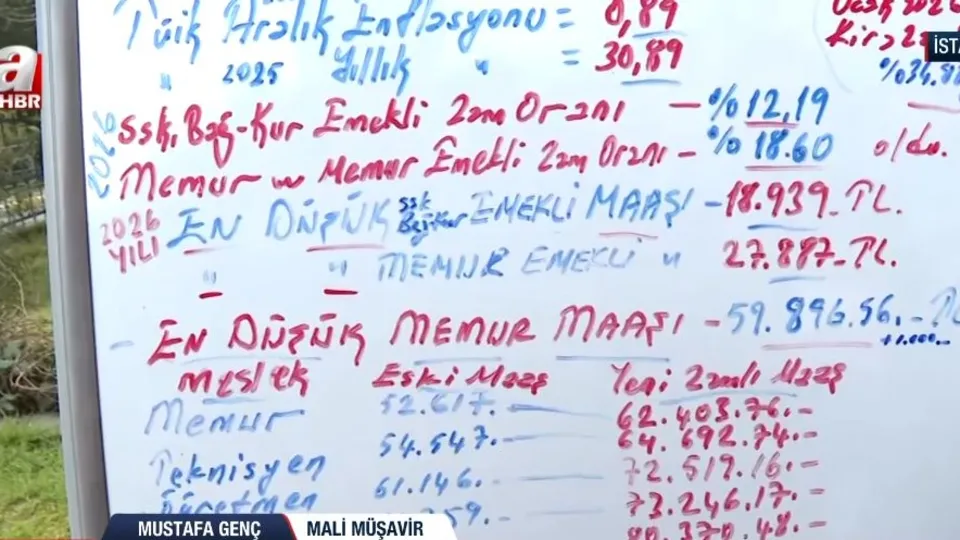 Tüik Aralık Enflasyonu = 0,89
" 2025 Yıllık " = 30,89
2026
Kira
%34.88
İSTA
a
HBR
2026 SSK, Bağ-Kur Emekli Zam Oranı — %12,19
Memur ve Memur Emekli Zam Oranı - %18.60 oldu.
2026 YILI EN DÜŞÜK SSK Bağkur EMEKLİ MAAŞI - 18.939.- TL.
" " MEMUR EMEKLİ " 27.887.- TL.
- EN DÜŞÜK MEMUR MAAŞI - 59.896.56.-
+1.000.-
Meslek Eski Maaş Yeni Zamlı Maaş
Memur 52.617.- 62.403.76.-
54.547.- 64.692.74.-
Teknisyen 61.146.- 72.519.16.-
Öğretmen 259.- 73.246.17.-
80.370.48.-
MUSTAFA GENÇ MALİ MÜŞAVİR